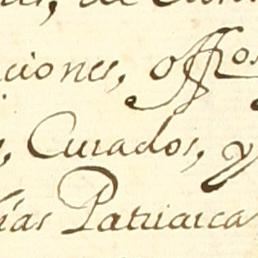 ciones, offos
, Curados, y
ías Patriarca